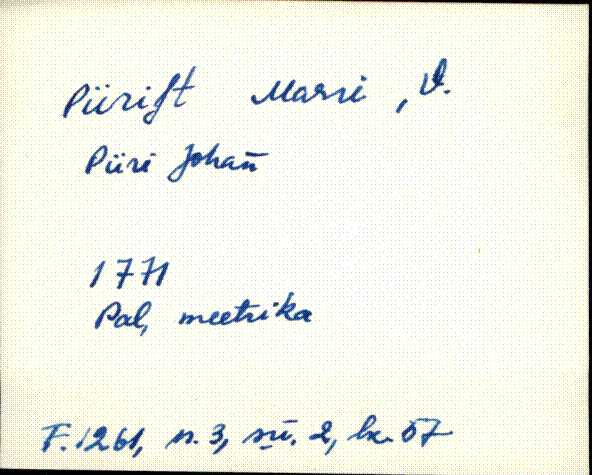 Pürift Marri, V.
Püri Johan̄
1771
Pal, meetrika
F. 1261, n. 3, sü. 2, lk. 57